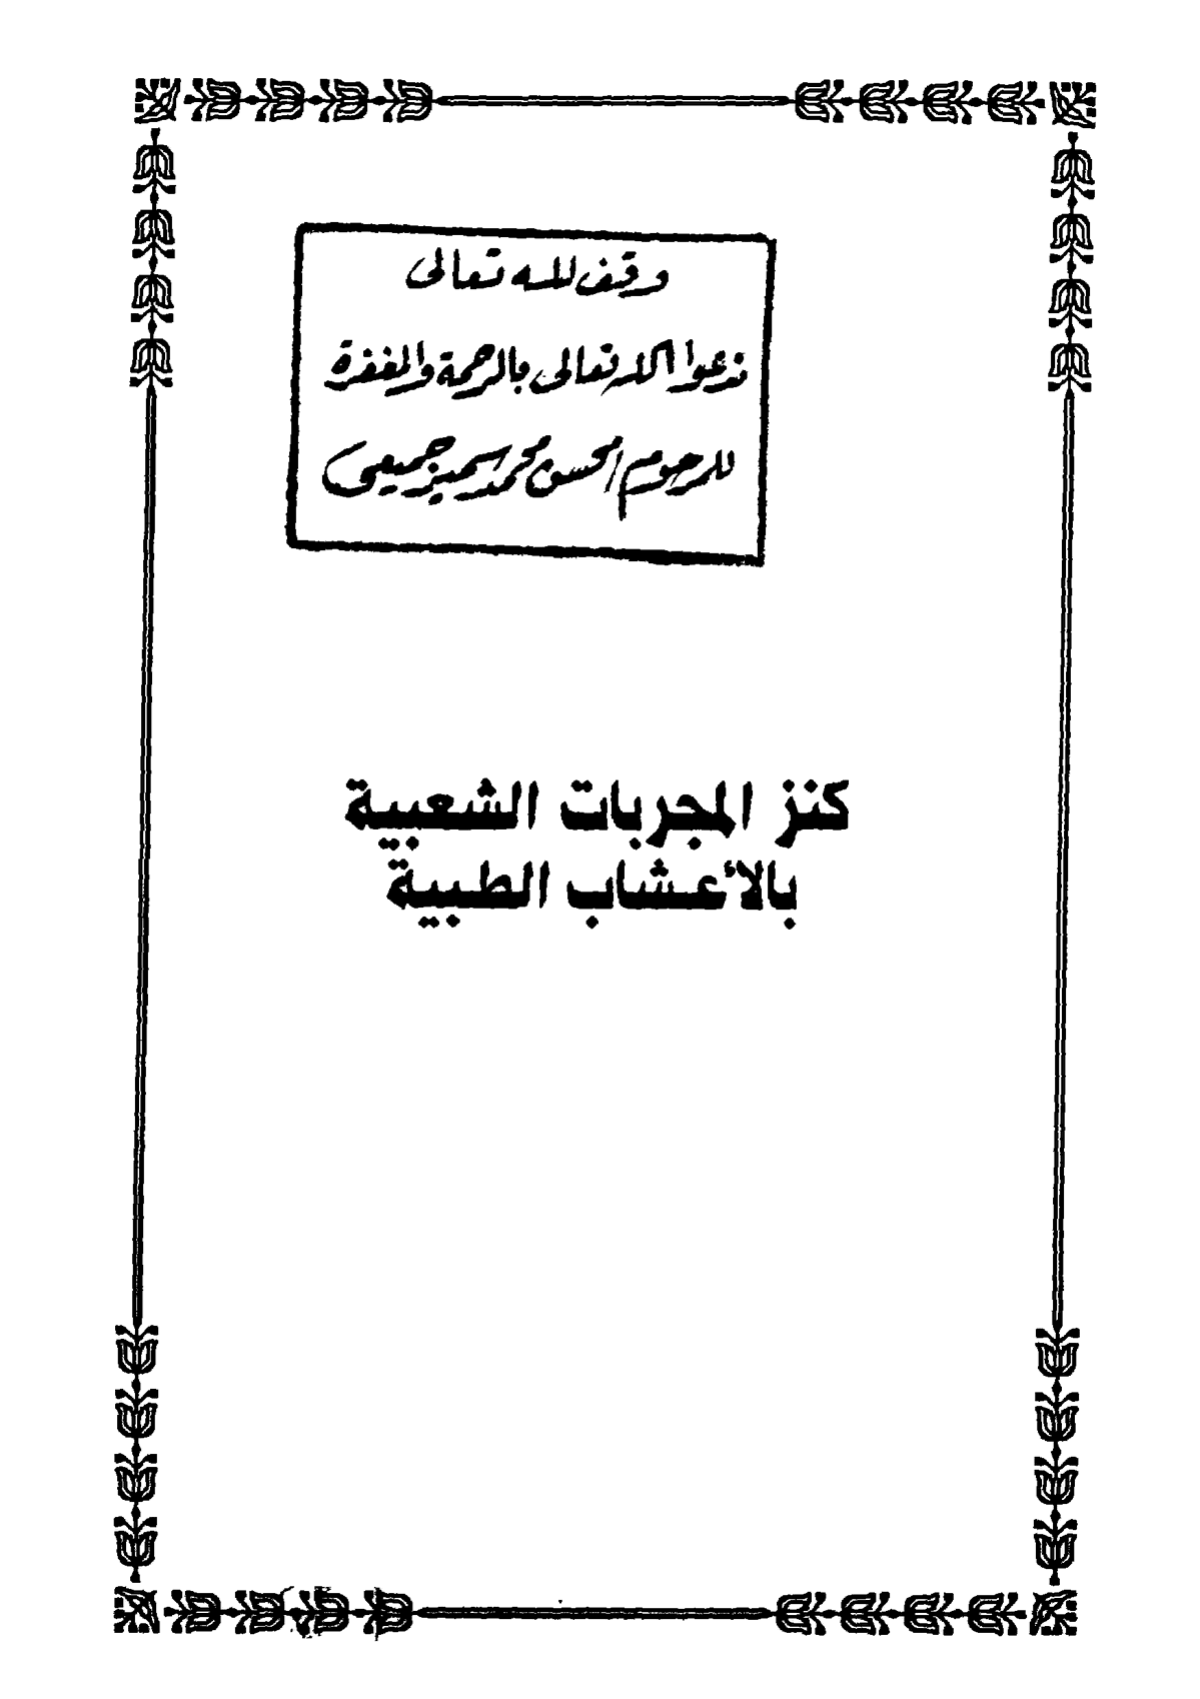 وقف لله تعالى
ندعوا الله تعالى بالرحمة والمغفرة
للمرحوم المحسن محمد سمير جميعي
كنز المجربات الشعبية
بالأعشاب الطبية